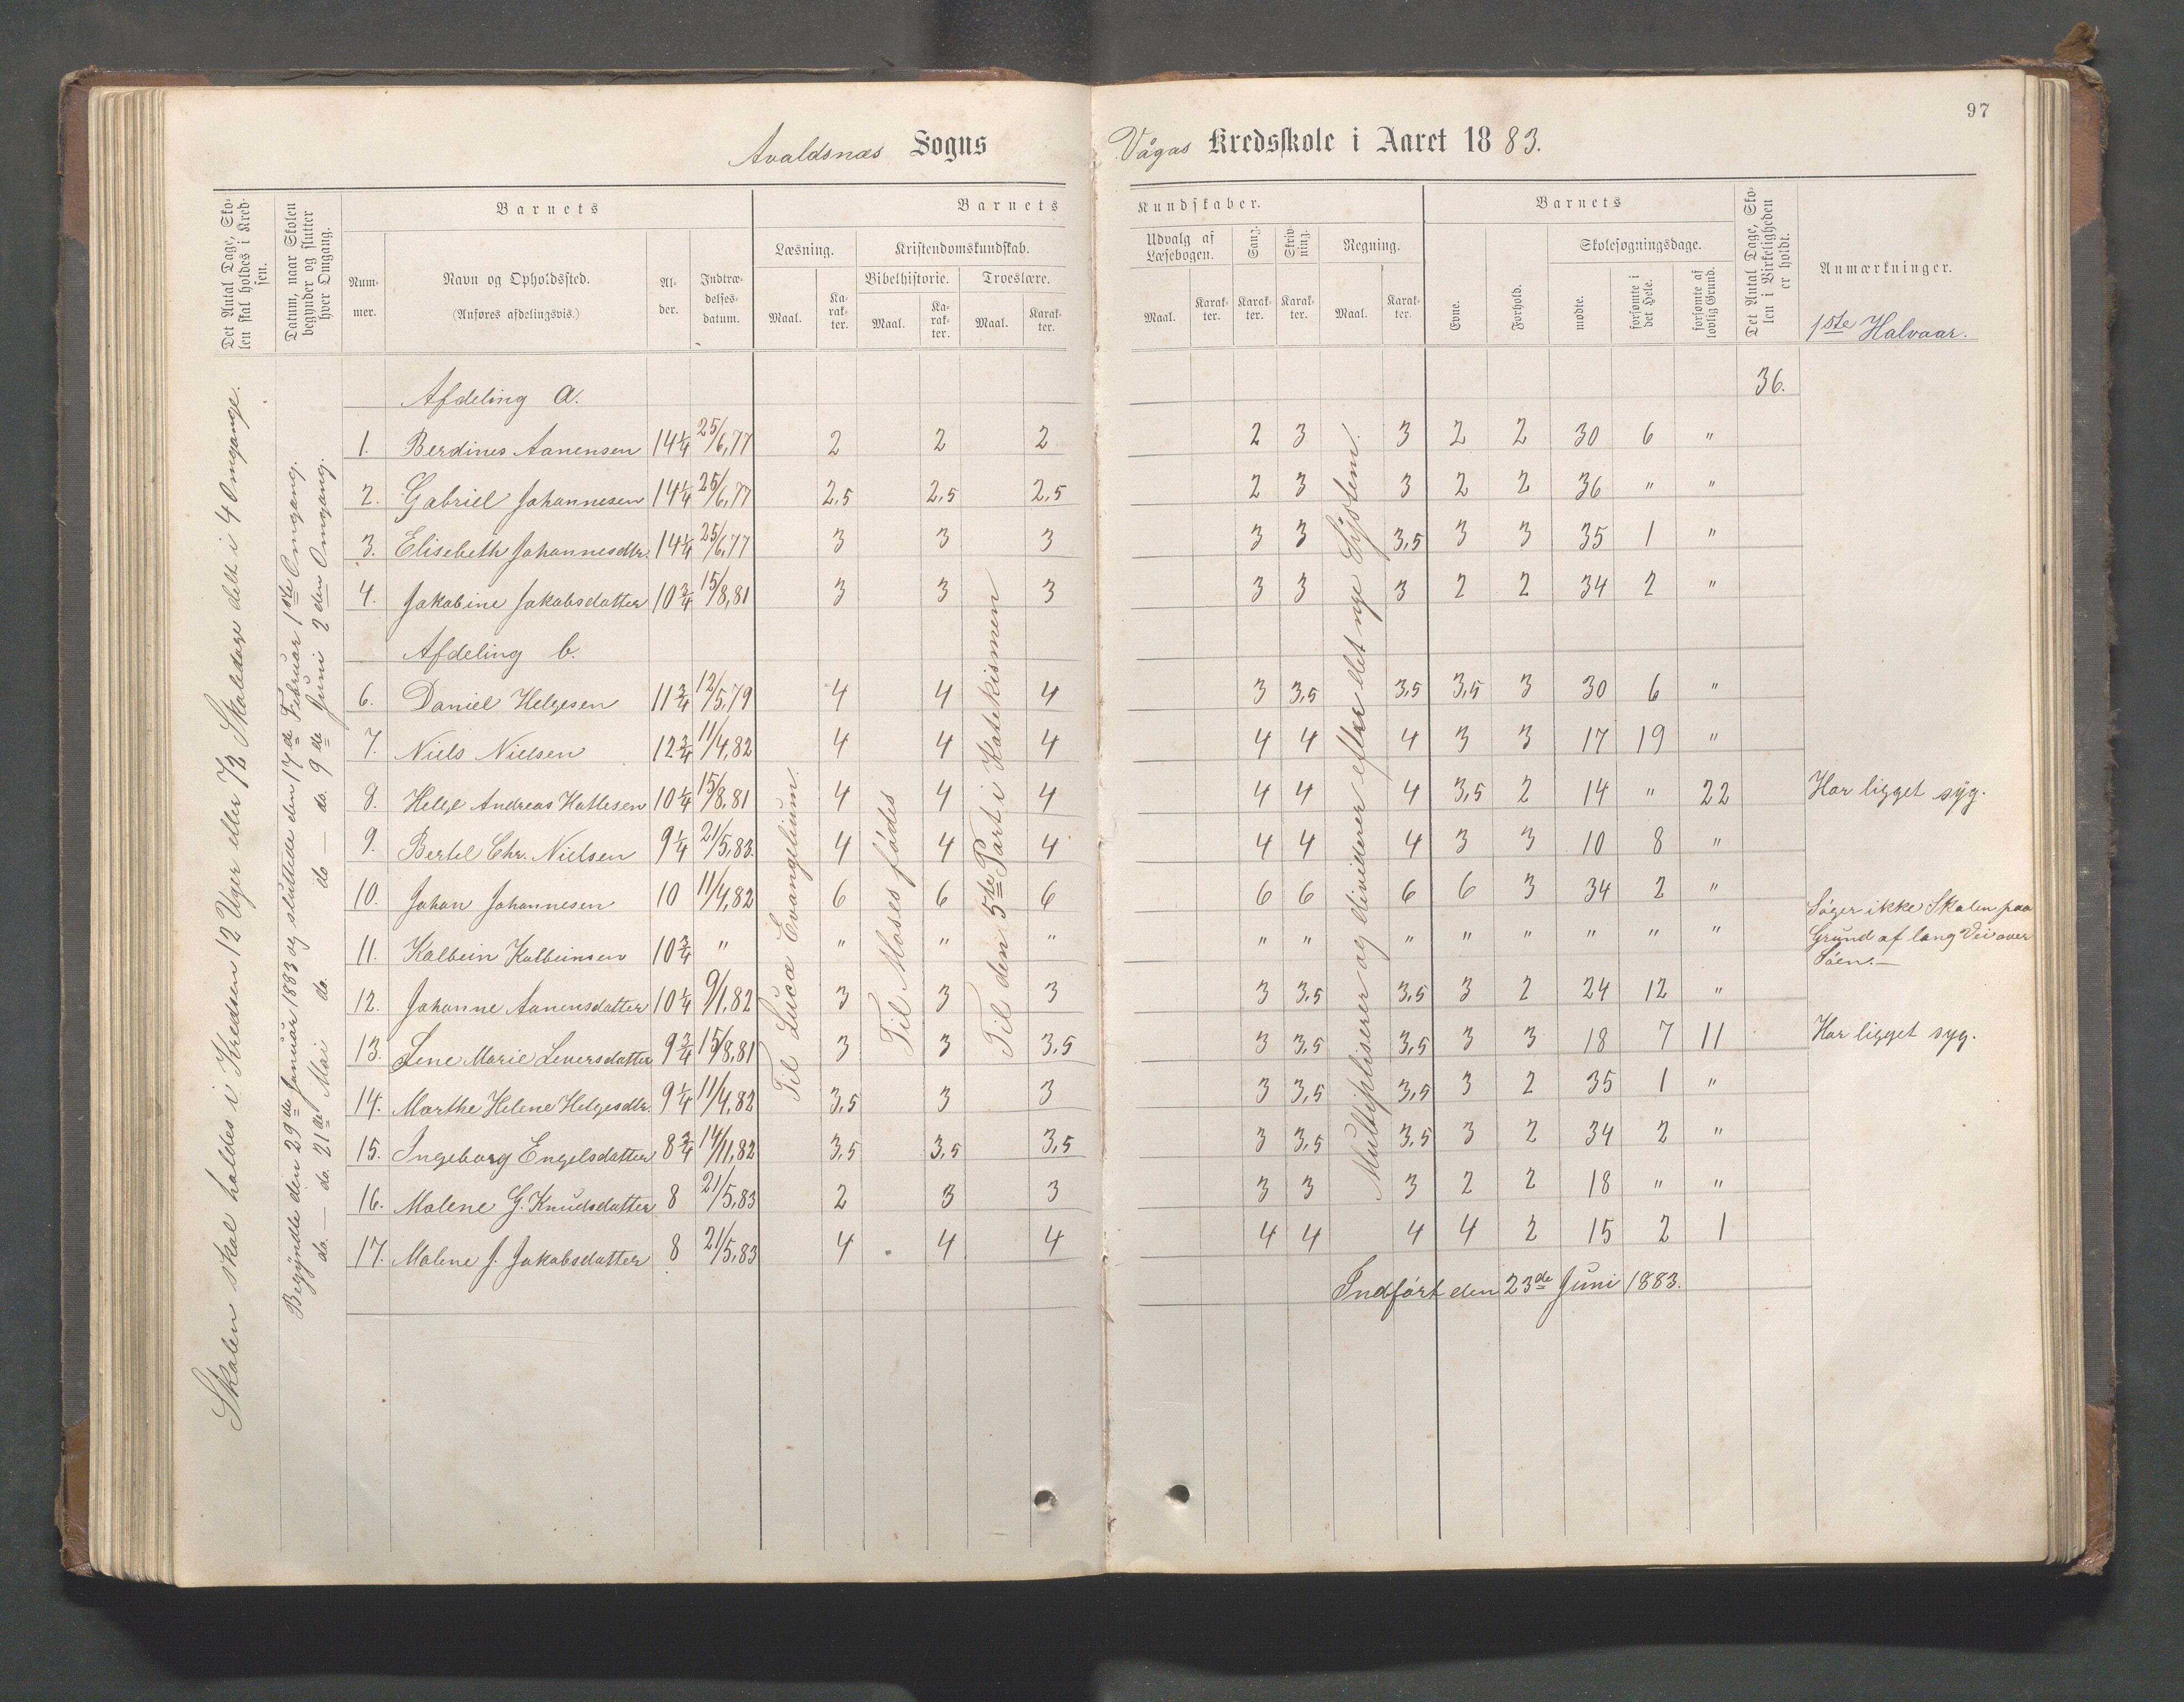 97
Avaldsnæs Sogns
Vågas Kredsskole i Aaret 1883.
Det Antal Dage, Skolen skal holdes i Kredsen.
Datum, naar Skolen begynder og slutter hver Omgang.
Barnets
Nummer.
Navn og Opholdssted.
(Anføres afdelingsvis.)
Alder.
Indtrædelsesdatum.
Barnets
Læsning.
Maal.
Karakter.
Kristendomskundskab.
Bibelhistorie.
Maal.
Karakter.
Troeslære.
Maal.
Karakter.
Kundskaber.
Udvalg af Læsebogen.
Maal.
Karakter.
Sang.
Karakter.
Skrivning.
Karakter.
Regning.
Maal.
Karakter.
Barnets
Evne.
Forhold.
Skolesøgningsdage.
mødte.
forsømte i det Hele.
forsømte af lovlig Grund.
Det Antal Dage, Skolen i Virkeligheden er holdt.
Anmærkninger.
1ste Halvaar.
Skolen skal holdes i Kredsen 12 Uger eller 72 Skoledage delt i 4 Omgange.
Begyndte den 29de Januar 1883 og sluttede den 17de Februar 1ste Omgang.
do. — do. 21de Mai do. do — do. 9de Juni 2den Omgang.
Til Lucæ Evangelium.
Til Moses fødes
Til den 5te Part i Katekismen
Multipliserer og dividerer efter det nye System.
Afdeling a. 36.
1. Berdines Aanensen 14 1/4 25/6,77 2 2 2 2 3 3 2 2 30 6 "
2. Gabriel Johannesen 14 1/4 25/6,77 2,5 2,5 2,5 2 3 3 2 2 36 " "
3. Elisebeth Johannesdtr. 14 1/4 25/6,77 3 3 3 3 3 3,5 3 3 35 1 "
4. Jakobine Jakobsdatter 10 3/4 15/8,81 3 3 3 3 3 3 2 2 34 2 "
Afdeling b.
6. Daniel Helgesen 11 3/4 12/5,79 4 4 4 3 3,5 3,5 3,5 3 30 6 "
7. Niels Nielsen 12 3/4 11/4,82 4 4 4 4 4 4 3 3 17 19 "
8. Helge Andreas Hatlesen 10 1/4 15/8,81 4 4 4 4 4 4 3,5 2 14 " 22 Har ligget syg.
9. Bertel Chr. Nielsen 9 1/4 21/5,83. 4 4 4 4 4 4 3 3 10 8 "
10. Johan Johannesen 10 11/4,82 6 6 6 6 6 6 6 3 34 2 "
11. Kolbein Kolbeinsen 10 3/4 " " " " " " " " " " " " Søger ikke Skolen paa
Grund af lang Vei over
Søen.—
12. Johanne Aanensdatter 10 1/4 9/1,82 3 3 3 3 3,5 3,5 3 2 24 12 "
13. Lene Marie Leversdatter 9 3/4 15/8,81 3 3 3,5 3 3,5 3,5 3 3 18 7 11 Har ligget syg.
14. Marthe Helene Helgesdtr. 9 1/4 11/4,82 3,5 3 3 3 3,5 3,5 3 2 35 1 "
15. Ingeborg Engelsdatter 8 3/4 14/11,82 3,5 3,5 3,5 3 3,5 3,5 3 2 34 2 "
16. Malene G. Knudsdatter 8 21/5,83 2 3 3 3 3 3 2 2 18 " "
17. Malene J. Jakobsdatter 8 21/5,83 4 4 4 4 4 4 4 2 15 2 1
Indført den 23de Juni 1883.